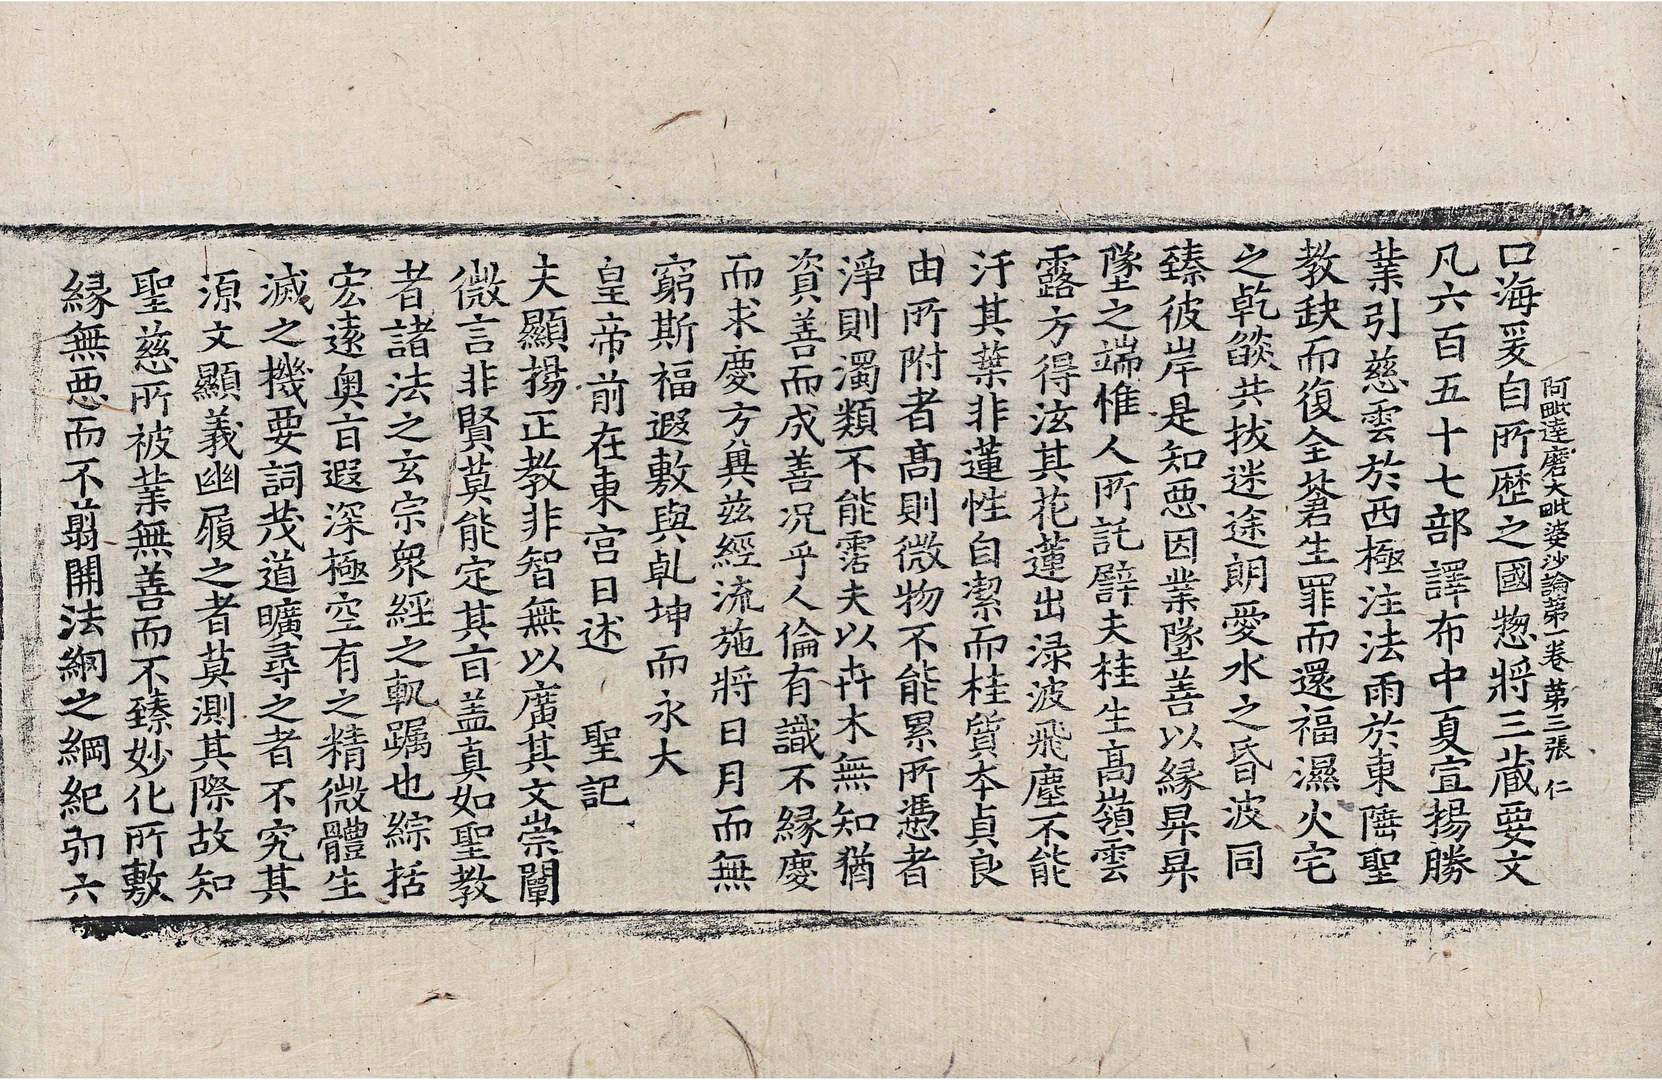 阿毗達磨大毗婆沙論第一卷 第三張 仁
口海爰自所歴之國惣將三藏要文
凡六百五十七部譯布中夏宣揚勝
業引慈雲於西極注法雨於東陲聖
教缺而復全蒼生罪而還福濕火宅
之乹燄共拔迷途朗愛水之昏波同
臻彼岸是知惡因業墜善以緣昇昇
墜之端惟人所託譬夫桂生髙嶺雲
露方得泫其花蓮出渌波飛塵不能
汙其葉非蓮性自潔而桂質本貞良
由所附者髙則微物不能累所憑者
淨則濁類不能霑夫以卉木無知猶
資善而成善況乎人倫有識不緣慶
而求慶方兾兹經流施將日月而無
窮斯福遐敷與乹坤而永大
皇帝前在東宮日述 聖記
夫顯揚正教非智無以廣其文崇闡
微言非賢莫能定其㫖盖真如聖教
者諸法之玄宗衆經之軌躅也綜括
宏遠奥㫖遐深極空有之精微體生
滅之機要詞茂道曠尋之者不究其
源文顯義幽履之者莫測其際故知
聖慈所被業無善而不臻妙化所敷
緣無惡而不翦開法網之綱紀弘六